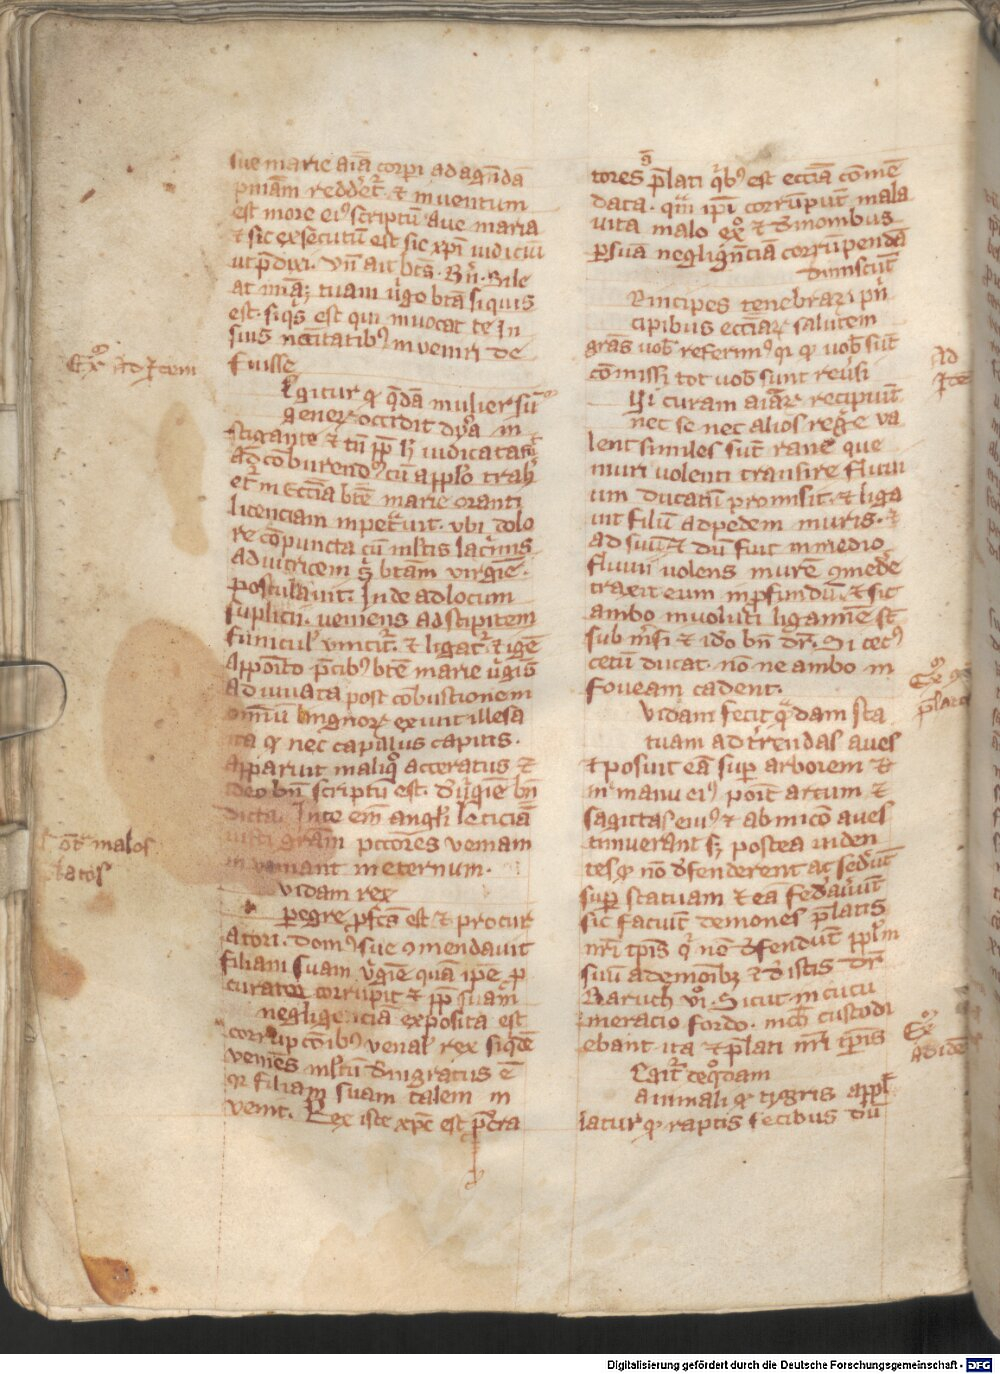 sue marie aīa corꝑi ad agēda
pn̄iam reddēt᷑. ⁊ inuentum
est more eiꝰ scriptū aue maria
⁊ sic exsecutū est sic xp̄i iudiciū
ut p̄dixi. Vn̄ ait bt̄s. Bn̄.
at mīaꝫ tuam ũgo btā siquis
est. siqͥs est qui inuocat te in
suis nccītatibꝰ inuenit de
fuisse
Ex̊ Ad Idem
Egitur ꝙ qͥdā mulier suū
generꝫ occidit dyā in
stigante ⁊ tn̄ ꝓp h iudicata
ad cōburendꝰ cū appl̄o trah
et᷑ in eccīa bt̄e marie oranti
licenciam inpetͣuit. vbi dolo
re cōpuncta cū ml̄tis lacͥmis
adiutricem btām virginē
postulauit. Inde ad locum
suplicii ueniens ad stipitem
funiculˀ uincit᷑. ⁊ ligat᷑. ⁊ igē
apposito p̄cibꝰ bt̄e marie ũginis
adiuuata post cōbustionem
omniū lingnoꝝ exiuit illesa
ita ꝙ nec capillus capitis.
apparuit aliqͦ acceratus ⁊
ideo bn̄ scriptū est. bn̄
dicta. In te em̄ angli leticiā
iusti grām pc̄c̄ores ueniam
in eternum.
malos
vidam rex
pegre ꝓfc̄s est ⁊ procur
atori. domꝰ sue ꝯmendauit
filiam suam ũgīe quā ip̄e ꝓ
curator corrupit ⁊ ꝓp suam
negligenciā exposita est
corrupcōibꝰ venalˀ rex siqͥdē
veniēs ml̄tū indigratus ē
ꝙ filiam suam talem in
venit. Rex iste xp̄c est ꝓcͣra
tores p̄lati qͥbꝰ est eccīa cōmē
data. qm̄ ip̄i corrūpūt mala
uita malo exͦ ⁊ demonibus
ꝑ sua negligēciā corrūpendā
dimiscūt
Rincipes tenebraꝝ pn̄
cipibus ecciaꝝ salutem
grās uob̄ referimꝰ qͥ ꝙ uob̄ sūt
cōmissi tot uob̄ sunt reusi
Ad
Idē
Ui curam aīaꝝ recipiūt
nec se nec alios regˀe va
lent similes sūt rane que
muri uolenti transire fluui
um ducatū promisit. ⁊ liga
uit filū ad pedem muris. ⁊
ad suū ⁊ dū fuit in medio
fluuii uolens murē ꝯmedˀe
traxit eum in ꝓfundū. ⁊ sic
ambo inuoluti ligamine st̄
sub m̄si ⁊ ido bn̄ dr̄. Si cecꝰ
cecū ducat. nōne ambo in
foueam cadent.
Ex̊
p̄latos
vidam fecit qͣndam sta
tuam ad trˀendas aues
⁊ posuit eā sup̄ arborem ⁊
in manu eiꝰ poīt arcum ⁊
sagittas eiuꝰ ⁊ ab inicō aues
timuerunt sꝫ postea uiden
tes ꝙ nō defenderent ac sedˀūt
sup̄ statuam ⁊ eā fedauˀūt
sic faciūt demones p̄latis
nr̄i tp̄is qͥ nō defendūt ppl̄m
suū a demoībꝫ ⁊ dˀ istis dr̄
Baruch vi. Sicut in cucu
meracio fordo. nich̄ custodi
ebant ita ⁊ p̄lati nr̄i tp̄ris
Ex̊
ad idē
Legit᷑ de qͦdam
animali ꝙ tygris appl̄
latur ꝙ raptis fecibus dū
Digitalisierung gefördert durch die Deutsche Forschungsgemeinschaft - DFG